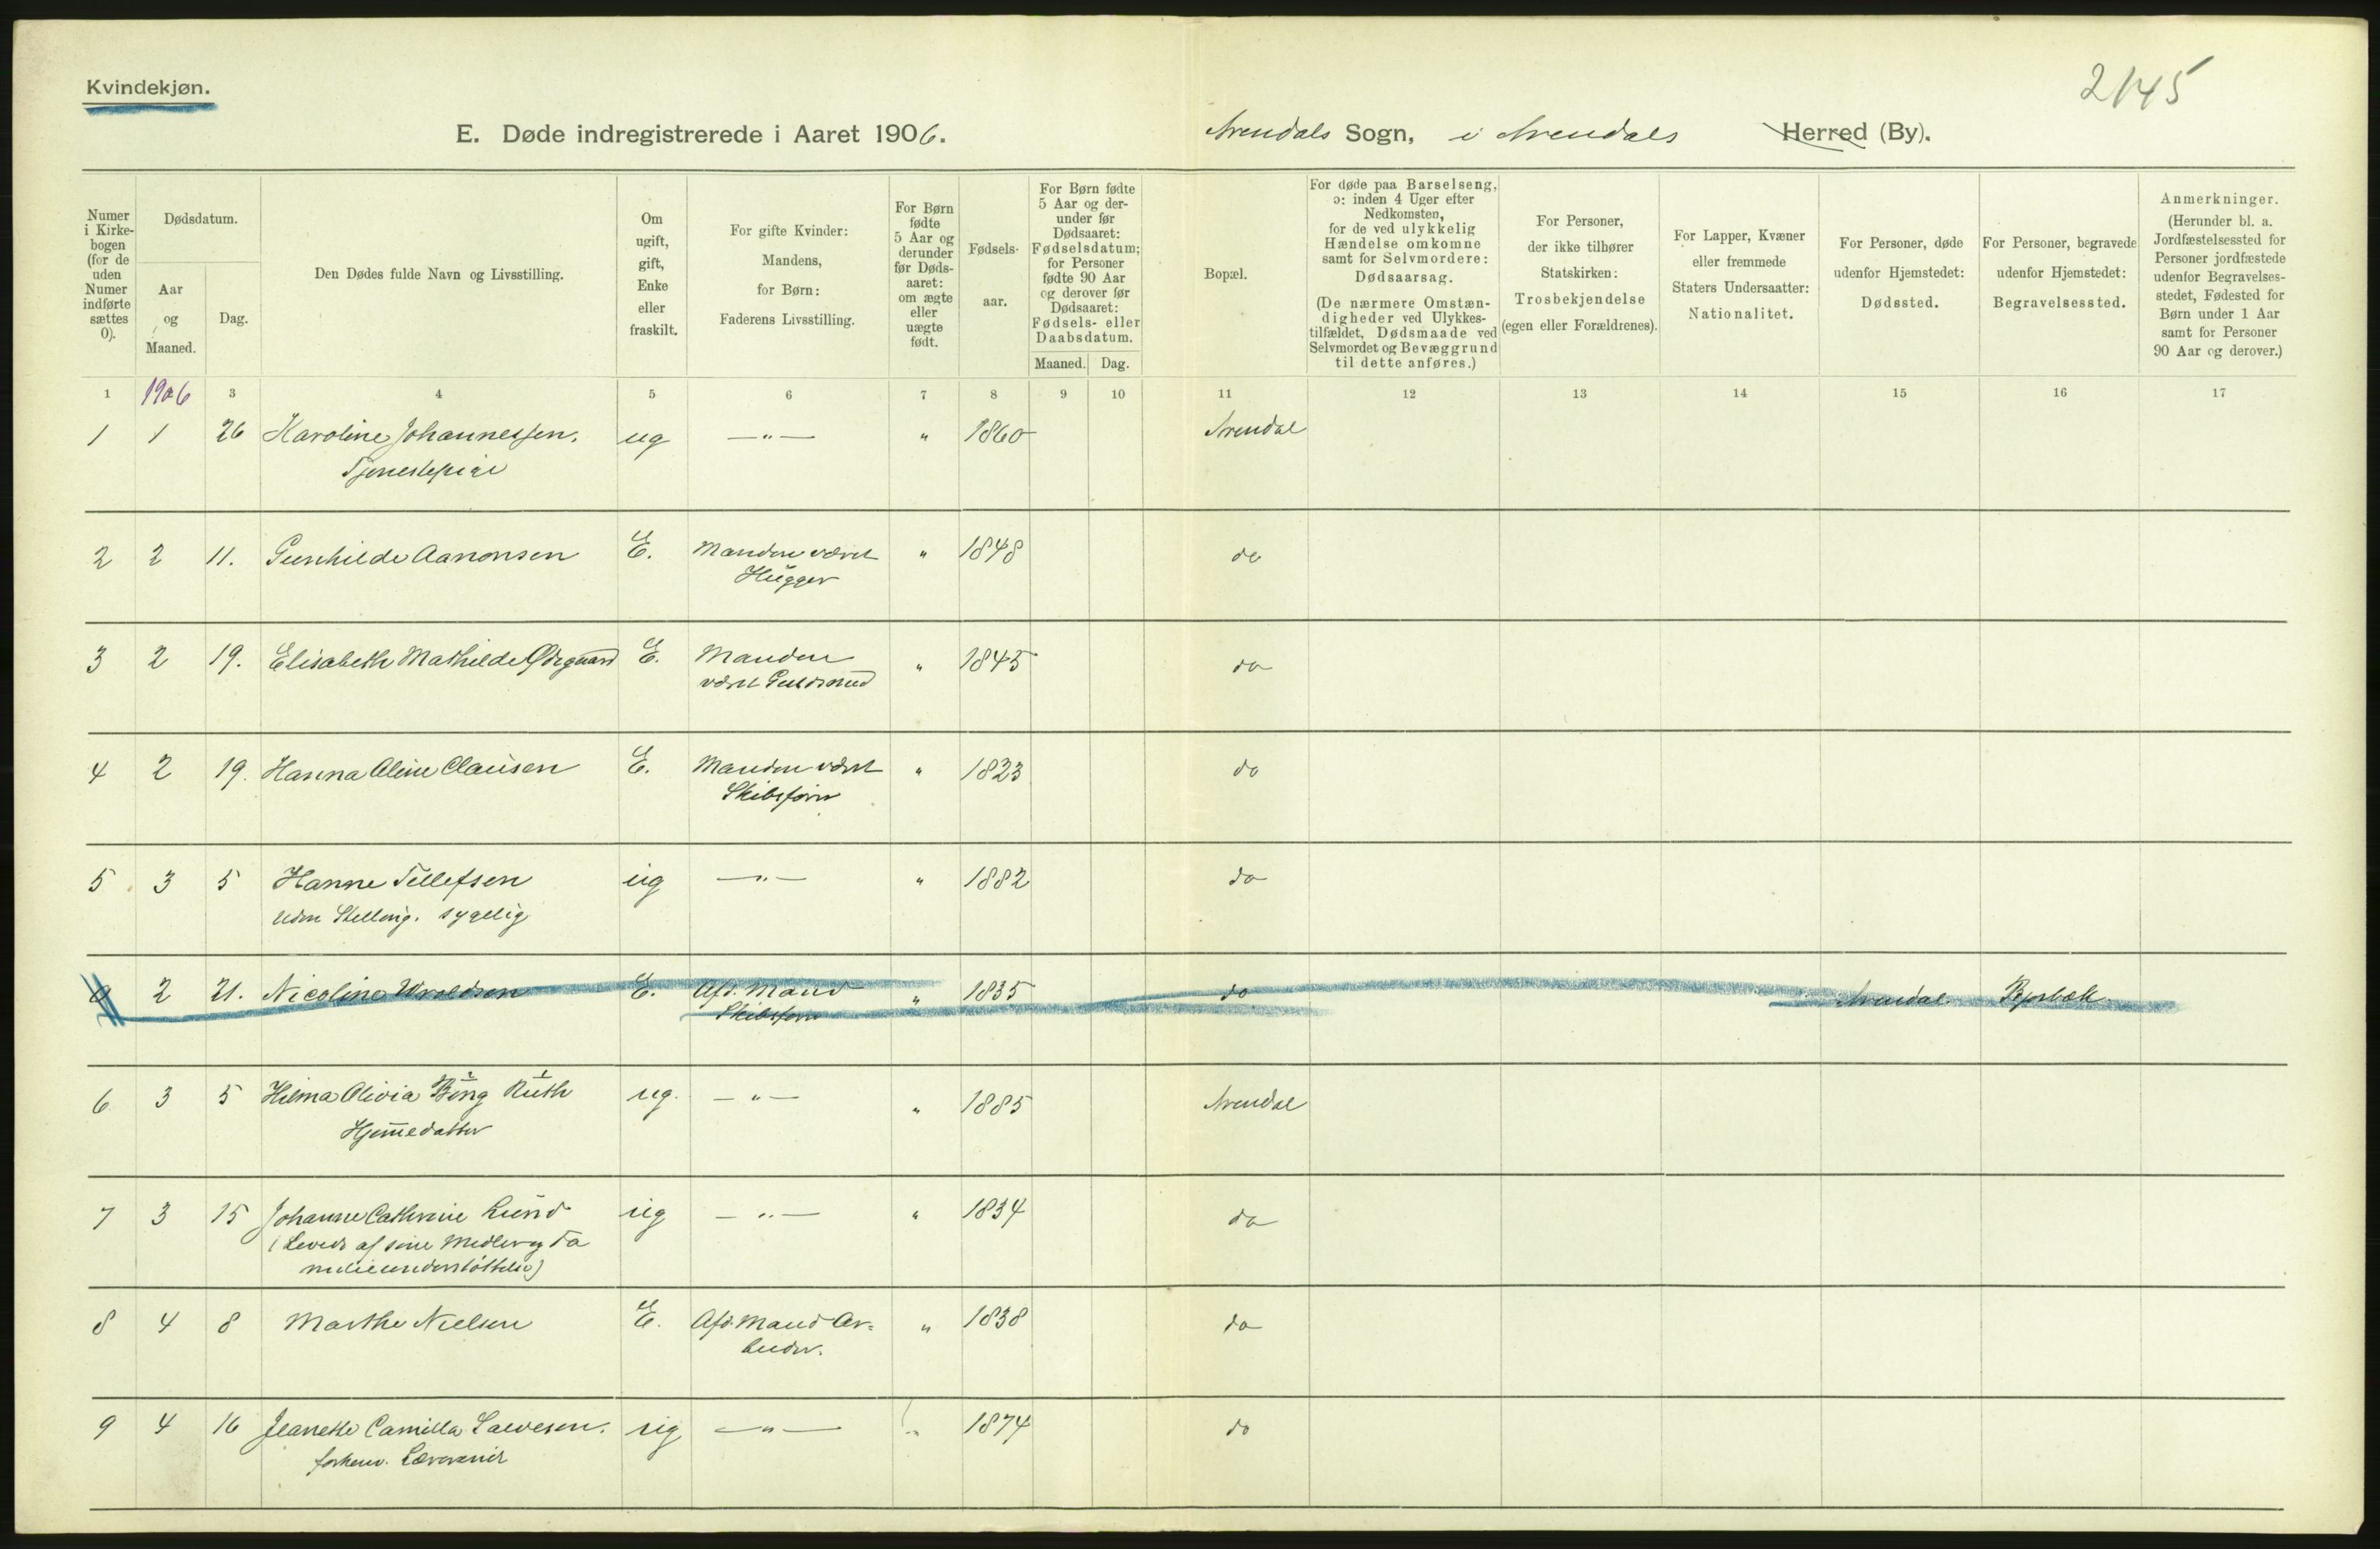 Kvindekjøn.
2145
E. Døde indregistrerede i Aaret 1906.
Arendals Sogn, i Arendals Herred (By).
Numer i Kirke-bogen (for de uden Numer indførte sættes 0).
Dødsdatum.
Aar og Maaned.
Dag.
Den Dødes fulde Navn og Livsstilling.
Om ugift, gift, Enke eller fraskilt.
For gifte Kvinder: Mandens, for Børn: Faderens Livsstilling.
For Børn fødte 5 Aar og derunder før Døds-aaret: om ægte eller uægte født.
Fødsels-aar.
For Børn fødte 5 Aar og der-under før Dødsaaret: Fødselsdatum; for Personer fødte 90 Aar og derover før Dødsaaret: Fødsels- eller Daabsdatum.
Maaned. Dag.
Bopæl.
For døde paa Barselseng, ɔ: inden 4 Uger efter Nedkomsten, for de ved ulykkelig Hændelse omkomne samt for Selvmordere: Dødsaarsag.
(De nærmere Omstæn-digheder ved Ulykkes-tilfældet, Dødsmaade ved Selvmordet og Bevæggrund til dette anføres.)
For Personer, der ikke tilhører Statskirken: Trosbekjendelse (egen eller Forældrenes).
For Lapper, Kvæner eller fremmede Staters Undersaatter: Nationalitet.
For Personer, døde udenfor Hjemstedet: Dødssted.
For Personer, begravede udenfor Hjemstedet: Begravelsessted.
Anmerkninger.
(Herunder bl. a. Jordfæstelsessted for Personer jordfæstede udenfor Begravelses-stedet, Fødested for Børn under 1 Aar samt for Personer 90 Aar og derover.)
1 1906 3 4 5 6 7 8 9 10 11 12 13 14 15 16 17
1 1 26 Karoline Johannessen. ug —„— „ 1860 Arendal
Tjenestepige
2 2 11. Gunhilde Aanonsen E. Manden været „ 1848 do
Hugger
3 2 19. Elisabeth Mathilde Ødegaard E. Manden „ 1845 do
været Guldsmed
4 2 19. Hanna Aline Clausen E. Manden været „ 1823 do
Skibsfører
5 3 5 Hanne Tellefsen ug —„— „ 1882 do
uden Stilling. sygelig
0 2 21. Nicoline Wroldsen E. Afd. Mand „ 1835 do Arendal
Skibsfører
6 3 5 Hilma Olivia Bing Ruth ug. —„— „ 1885 Arendal
Hjemmedatter
7 3 15 Johanne Cathrine Lund ug —„— „ 1834 do
(Leved af sine Midler og Fa
milieunderstøttelse)
8 4 8 Marthe Nielsen E. Afd. Mand Ar= „ 1838 do
beider.
9 4 16 Jeanette Camilla Salvesen. ug —„— „ 1874 do
forhenv. Lærerinde